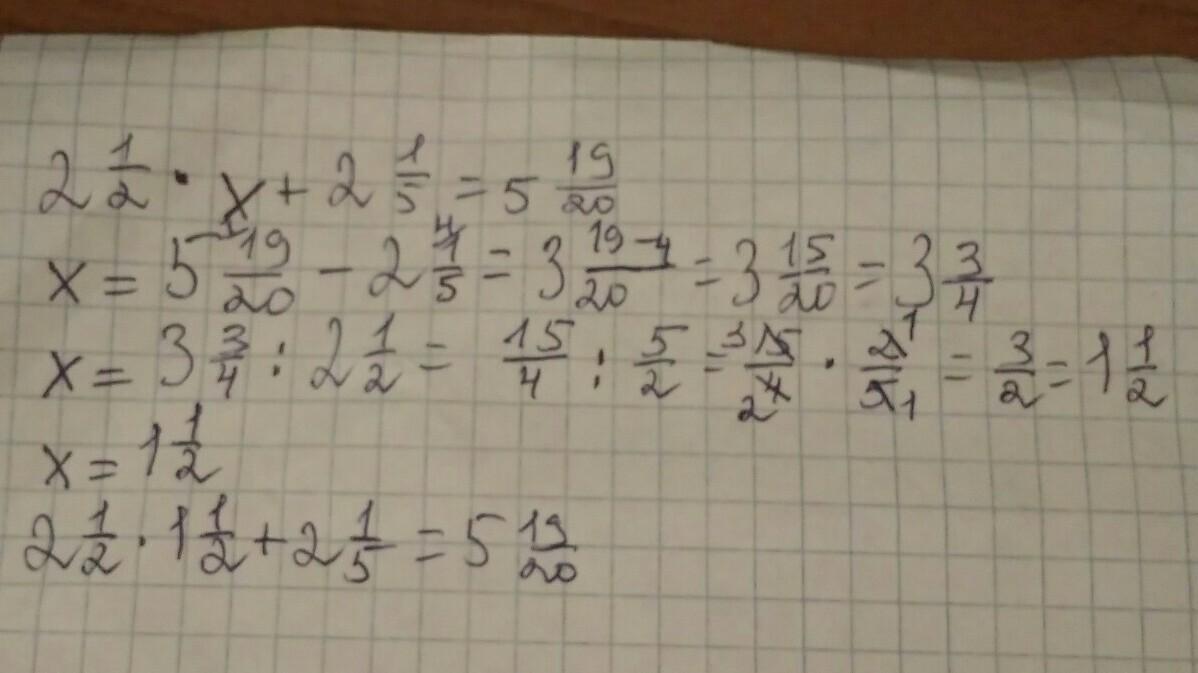 2 1/2 · x + 2 1/5 = 5 19/20
x = 5 19/20 - 2 1/5 = 3 19-4/20 = 3 15/20 = 3 3/4
x = 3 3/4 : 2 1/2 = 15/4 : 5/2 = 15/4 · 2/5 = 3/2 = 1 1/2
x = 1 1/2
2 1/2 · 1 1/2 + 2 1/5 = 5 19/20